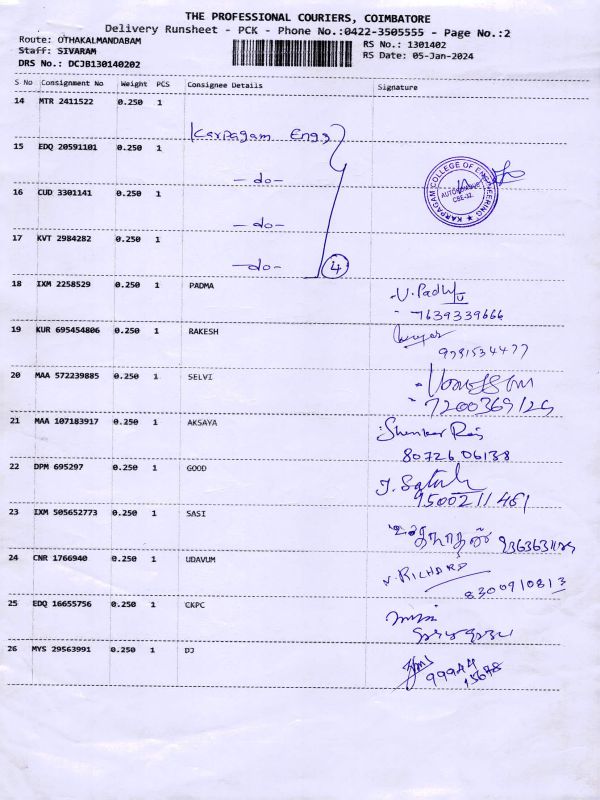 THE PROFESSIONAL COURIERS, COIMBATORE
Delivery Runsheet - PCK - Phone No.:0422-3505555 - Page No.:2
Route: OTHAKALMANDABAM
RS No.: 1301402
Staff: SIVARAM
RS Date: 05-Jan-2024
DRS No.: DCJB130140202
S No Consignment No Weight PCS Consignee Details Signature
14 MTR 2411522 0.250 1
Karpagam Engg
15 EDQ 20591101 0.250 1
- do -
KARPAGAM COLLEGE OF ENGINEERING
AUTONOMOUS
CBE-32.
16 CUD 3301141 0.250 1
- do -
17 KVT 2984282 0.250 1
- do - 4
18 IXM 2258529 0.250 1 PADMA
7639339666
19 KUR 695454806 0.250 1 RAKESH
9781534477
20 MAA 572239885 0.250 1 SELVI
7200369124
21 MAA 107183917 0.250 1 AKSAYA
80726 06138
22 DPM 695297 0.250 1 GOOD
9500211461
23 IXM 505652773 0.250 1 SASI
24 CNR 1766940 0.250 1 UDAVUM
V. RICHARD
8300910813
25 EDQ 16655756 0.250 1 CKPC
26 MYS 29563991 0.250 1 DJ
99944
15678